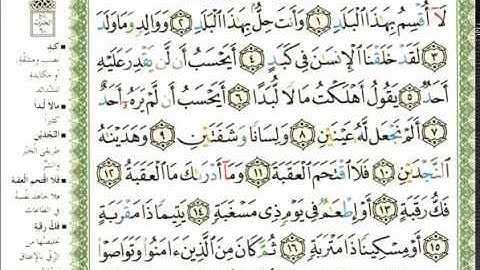 لَا أُقْسِمُ بِهَٰذَا الْبَلَدِ ۝١ وَأَنتَ حِلٌّ بِهَٰذَا الْبَلَدِ ۝٢ وَوَالِدٍ وَمَا وَلَدَ
۝٣ لَقَدْ خَلَقْنَا الْإِنسَٰنَ فِي كَبَدٍ ۝٤ أَيَحْسَبُ أَن لَّن يَقْدِرَ عَلَيْهِ
أَحَدٌ ۝٥ يَقُولُ أَهْلَكْتُ مَالًا لُّبَدًا ۝٦ أَيَحْسَبُ أَن لَّمْ يَرَهُ أَحَدٌ
۝٧ أَلَمْ نَجْعَل لَّهُ عَيْنَيْنِ ۝٨ وَلِسَانًا وَشَفَتَيْنِ ۝٩ وَهَدَيْنَٰهُ
النَّجْدَيْنِ ۝١٠ فَلَا اقْتَحَمَ الْعَقَبَةَ ۝١١ وَمَا أَدْرَىٰكَ مَا الْعَقَبَةُ ۝١٢
فَكُّ رَقَبَةٍ ۝١٣ أَوْ إِطْعَٰمٌ فِي يَوْمٍ ذِي مَسْغَبَةٍ ۝١٤ يَتِيمًا ذَا مَقْرَبَةٍ
۝١٥ أَوْ مِسْكِينًا ذَا مَتْرَبَةٍ ۝١٦ ثُمَّ كَانَ مِنَ الَّذِينَ ءَامَنُوا وَتَوَاصَوْا
كَبَدٍ
نصب ومشقّة
أو مكابدة
للشدائد
مَالًا لُّبَدًا
كثيرا
النَّجْدَيْنِ
طريقي الخير
والشر
فَلَا اقْتَحَمَ الْعَقَبَةَ
فلا جاهد نفسه
في الطاعات
فَكُّ رَقَبَةٍ
تخليصها من
الرق بالإعتاق